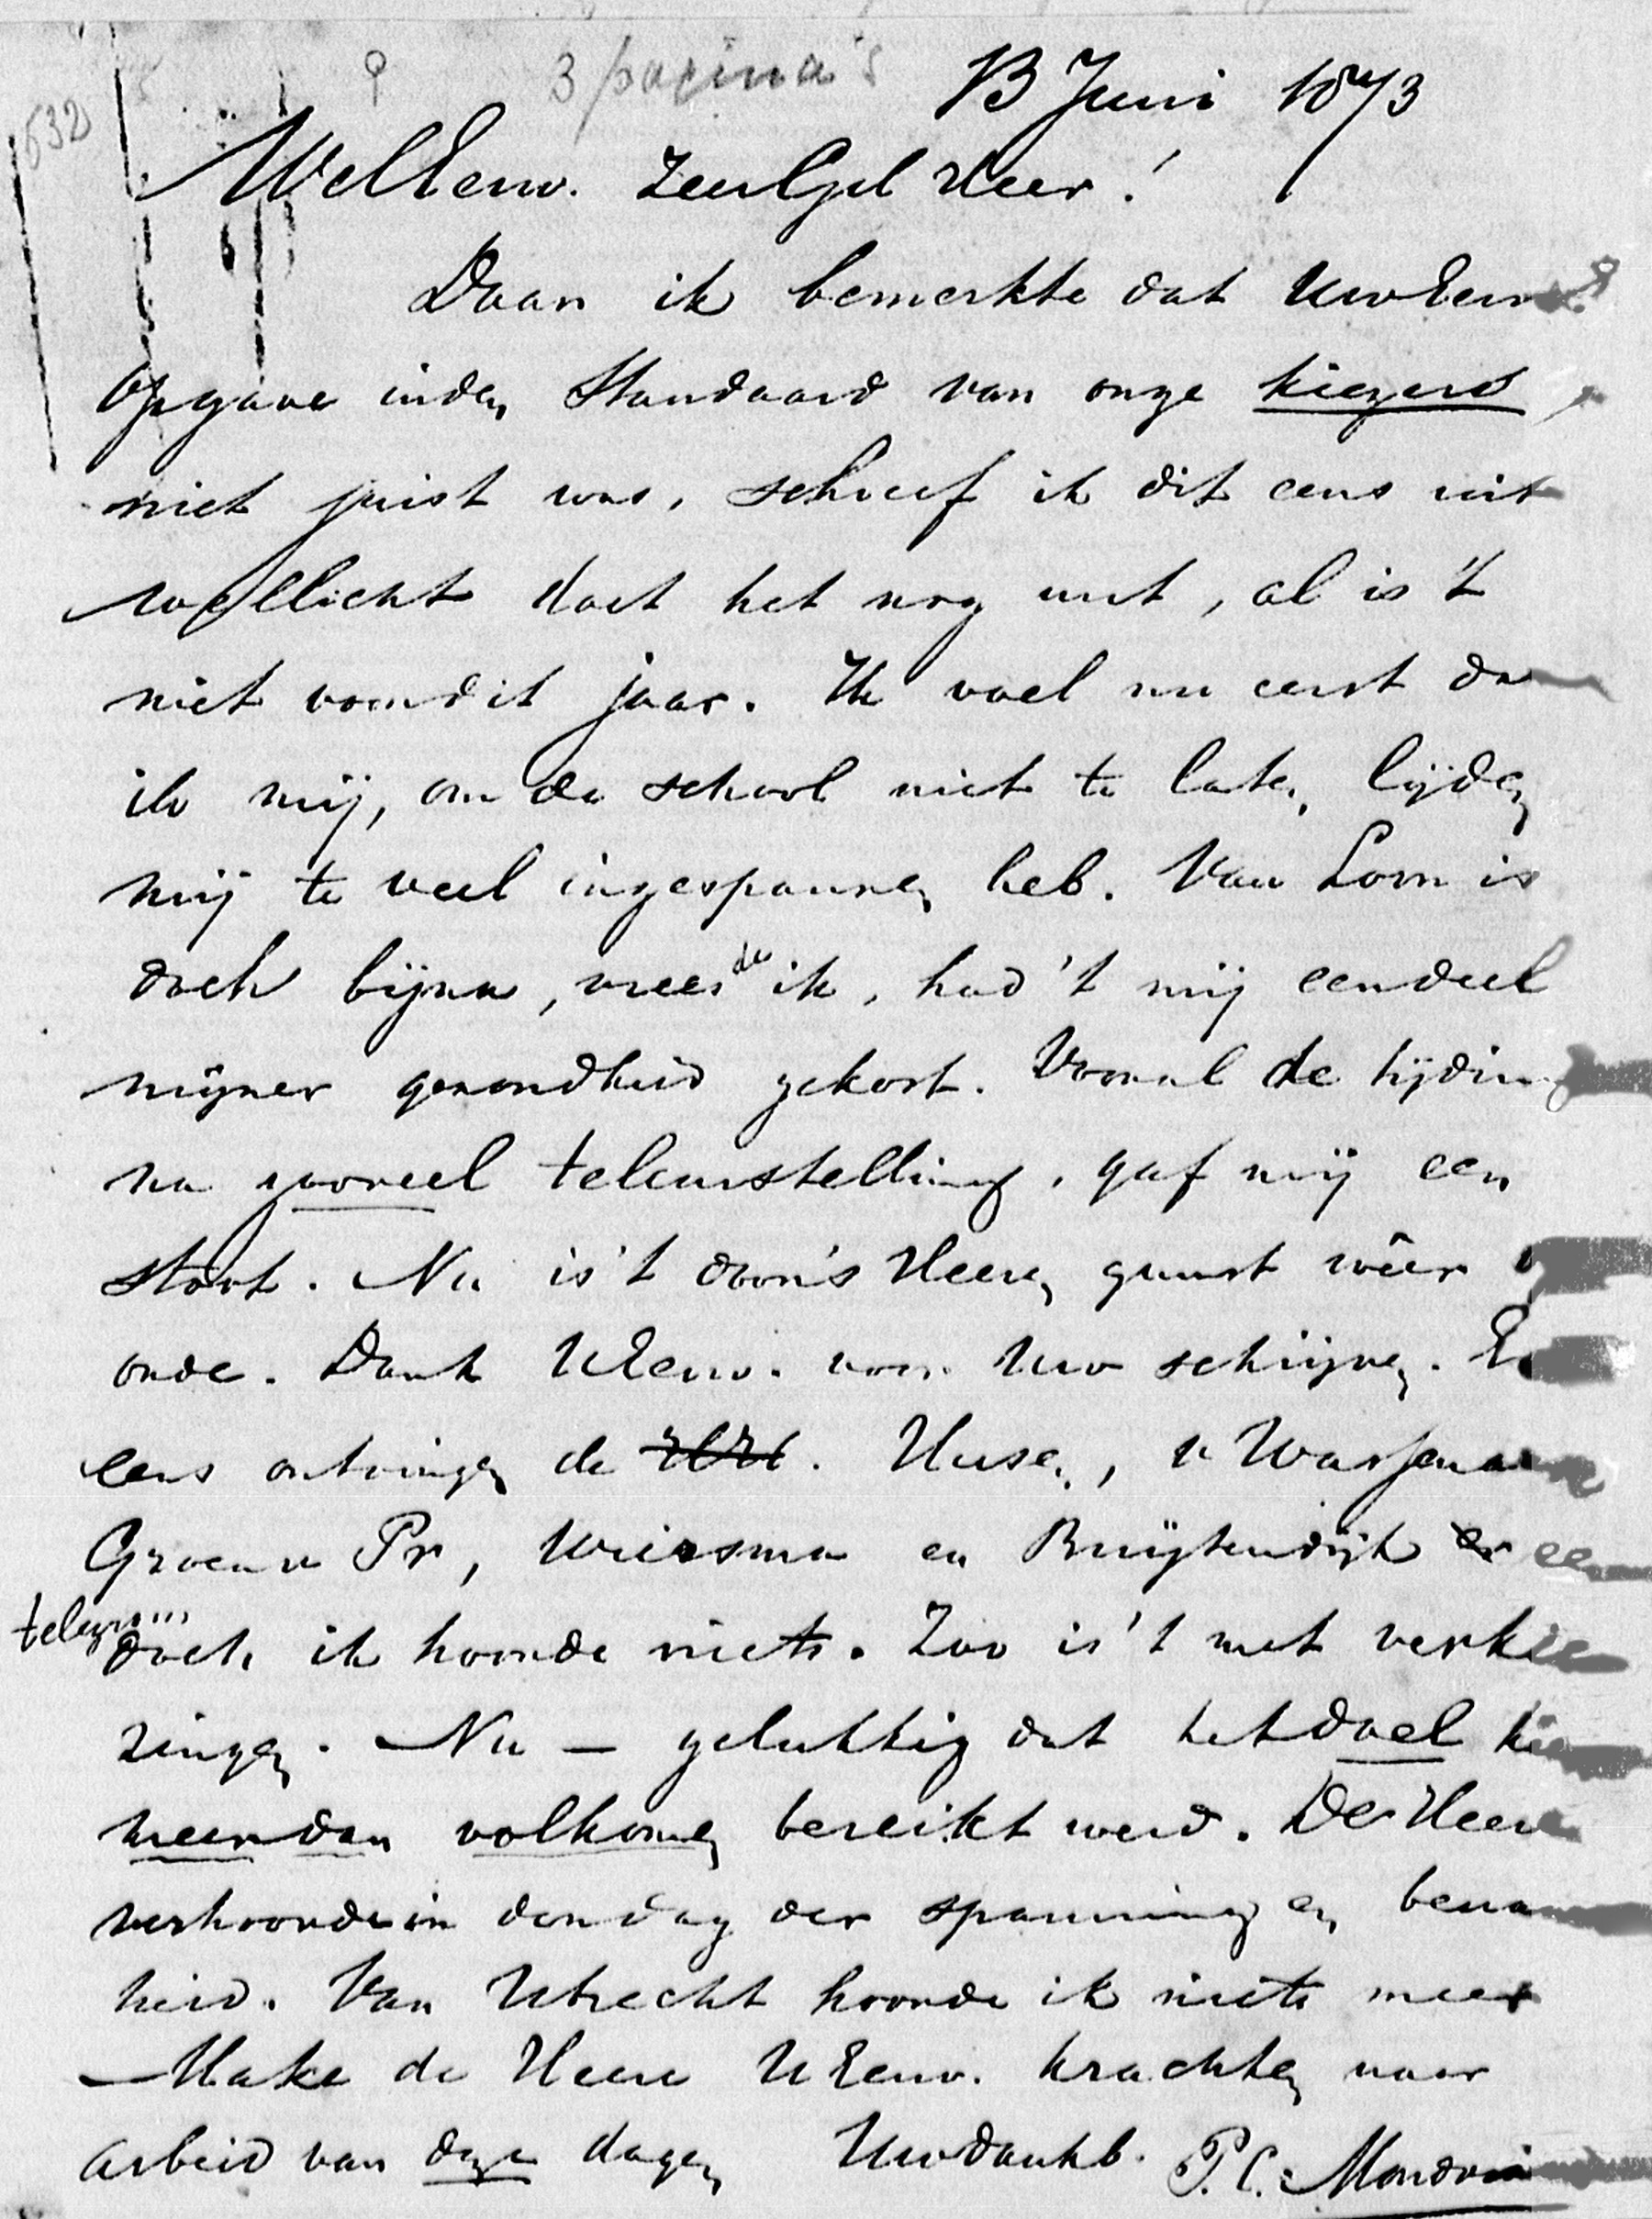 632
3 pagina's
13 Juni 1873
WelEerw. ZeerGel Heer!
Daar ik bemerkte dat UwEerw
opgave in den Standaard van onze kiezers,
niet juist was, schreef ik dit eens uit
wellicht doet het nog nut, al is 't
niet voor dit jaar. Ik voel nu eerst da
ik mij, om de school niet te laten lijden
mij te veel ingespannen heb. Van Loon is
doch bijna, vreesde ik, had 't mij een deel
mijner gezondheid gekost. Vooral de tijding
na zooveel teleurstelling, gaf mij een
stoot. Nu is 't door 's Heeren gunst wêer
orde. Dank UEerw. voor Uw schrijven. E
eens ontvingen de Huser, v Wassenaar
Groen v Pr, Wiersma en Buijtendijk een
telegr...
doch ik hoorde niets. Zoo is 't met verkie
zingen. Nu — gelukkig dat het doel hier
meer dan volkomen bereikt werd. De Heere
verhoorde in den dag der spanning en benau
heid. Van Utrecht hoorde ik niets meer
— Make de Heere UEerw. krachten naar
arbeid van deze dagen Uw dankb. P.C. Mondria